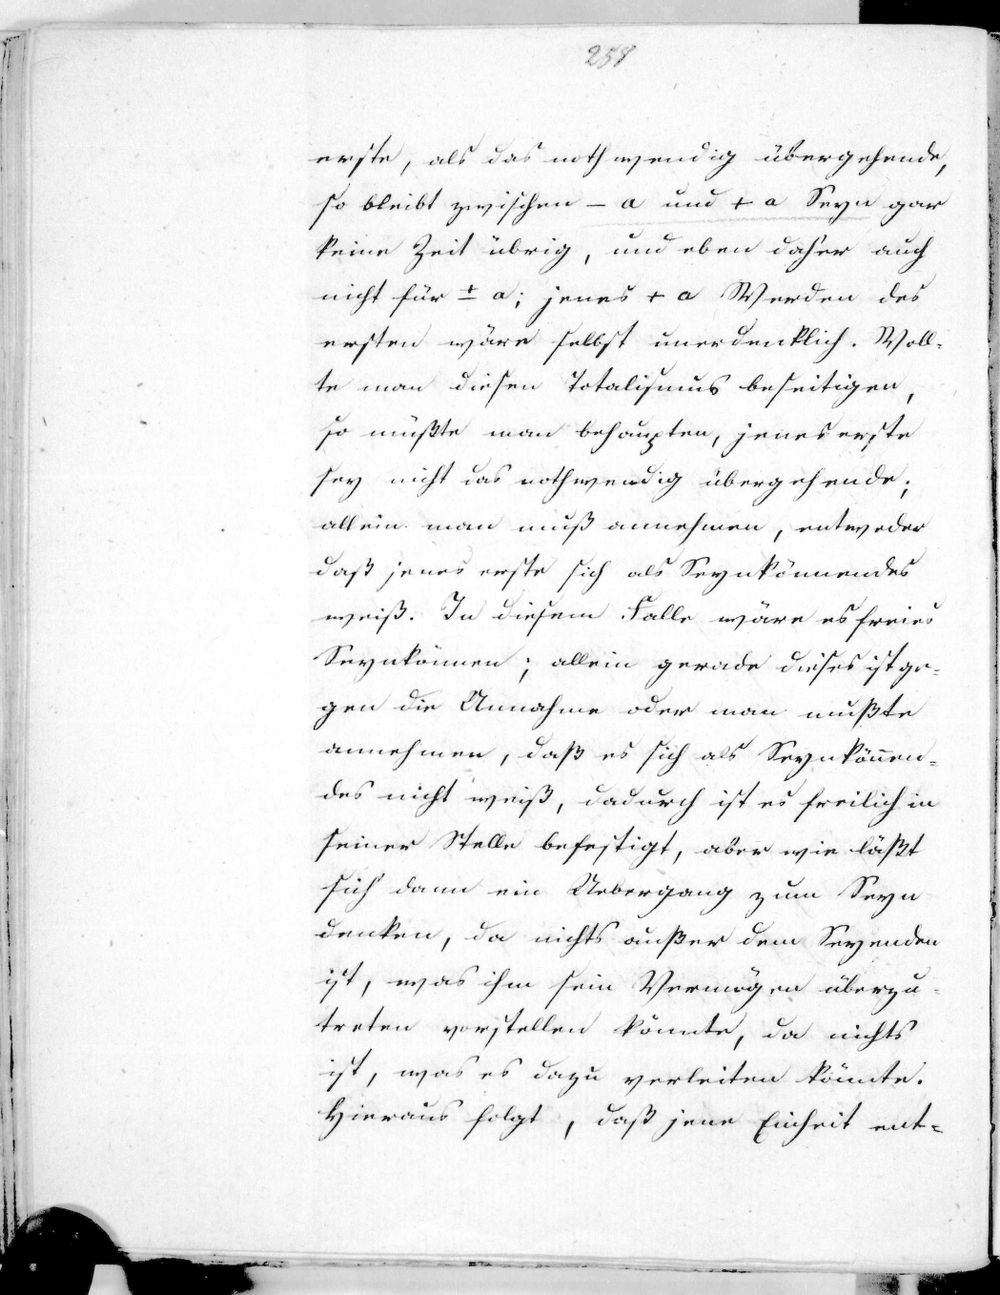 258
erste, als das nothwendig übergehende,
so bleibt zwischen – a und + a Seyn gar
keine Zeit übrig, und eben daher auch
nicht für ± a; jenes + a Werden des
ersten wäre selbst unerdenklich. Woll-
te man diesen Totalismus beseitigen,
so müßte man behaupten, jenes erste
sey nicht das nothwendig übergehende;
allein man muß annehmen, entweder
daß jenes erste sich als Seynkönnendes
weiß. In diesem Falle wäre es freies
Seynkönnen; allein gerade dieses ist ge-
gen die Annahme oder man müßte
annehmen, daß es sich als Seynkönnen-
des nicht weiß, dadurch ist es freilich in
seiner Stelle befestigt, aber wie läßt
sich dann ein Uebergang zum Seyn
denken, da nichts außer dem Seyenden
ist, was ihm sein Vermögen überzu-
treten vorstellen könnte, da nichts
ist, was es dazu verleiten könnte.
Hieraus folgt, daß jene Einheit ent-